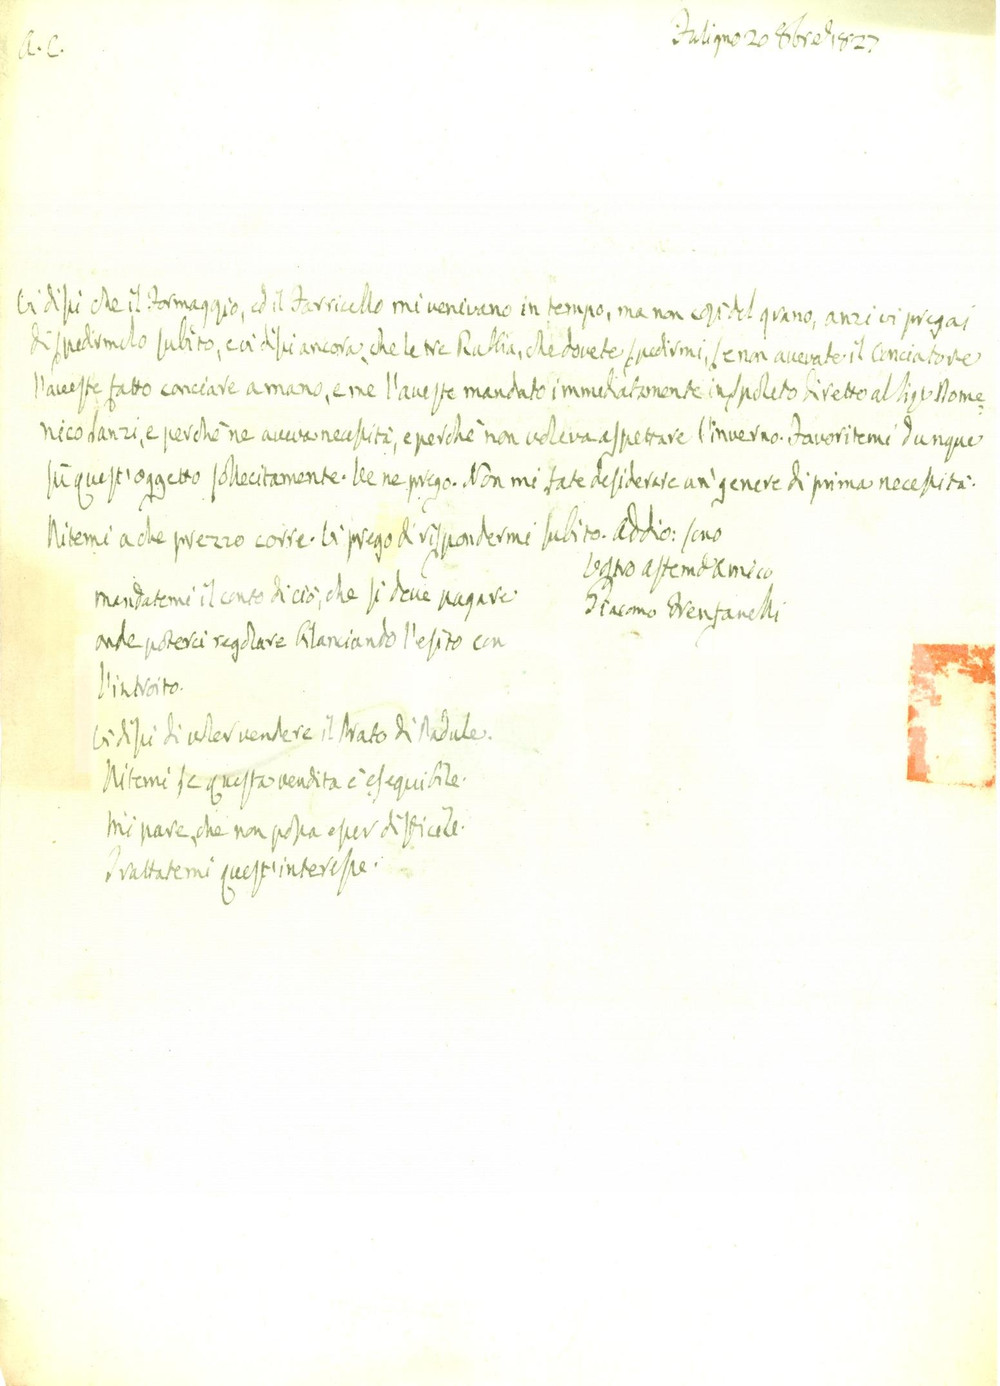 A. C.
Fuligno 20 8bre 1827
Vi dissi che il Formaggio, ed il Farricello mi venivano in tempo, ma non così del grano, anzi vi pregai
di spedirmelo subito, e vi dissi ancora, che le tre Rubbia, che dovete spedirmi, se non avevate il Conciatore
l'aveste fatto conciare a mano, e me l'aveste mandato immediatamente in Spoleto diretto al Sigr Dome=
nico Sanzi, e perchè ne aveva necessità, e perchè non voleva aspettare l'inverno. Favoritemi dunque
sù quest'oggetto sollecitamente. Ve ne prego. Non mi fate desiderare un genere di prima necessità.
Ditemi a che prezzo corre. Vi prego di rispondermi subito. Addio: sono
Vostro affemo Amico
Giacomo
mandatemi il conto di ciò, che si deve pagare
onde poterci regolare bilanciando l'esito con
l'introito.
Vi dissi di voler vendere il Prato di Padule.
Ditemi se questa vendita è eseguibile.
Mi pare, che non possa esser difficile.
Trattatemi quest'interesse.